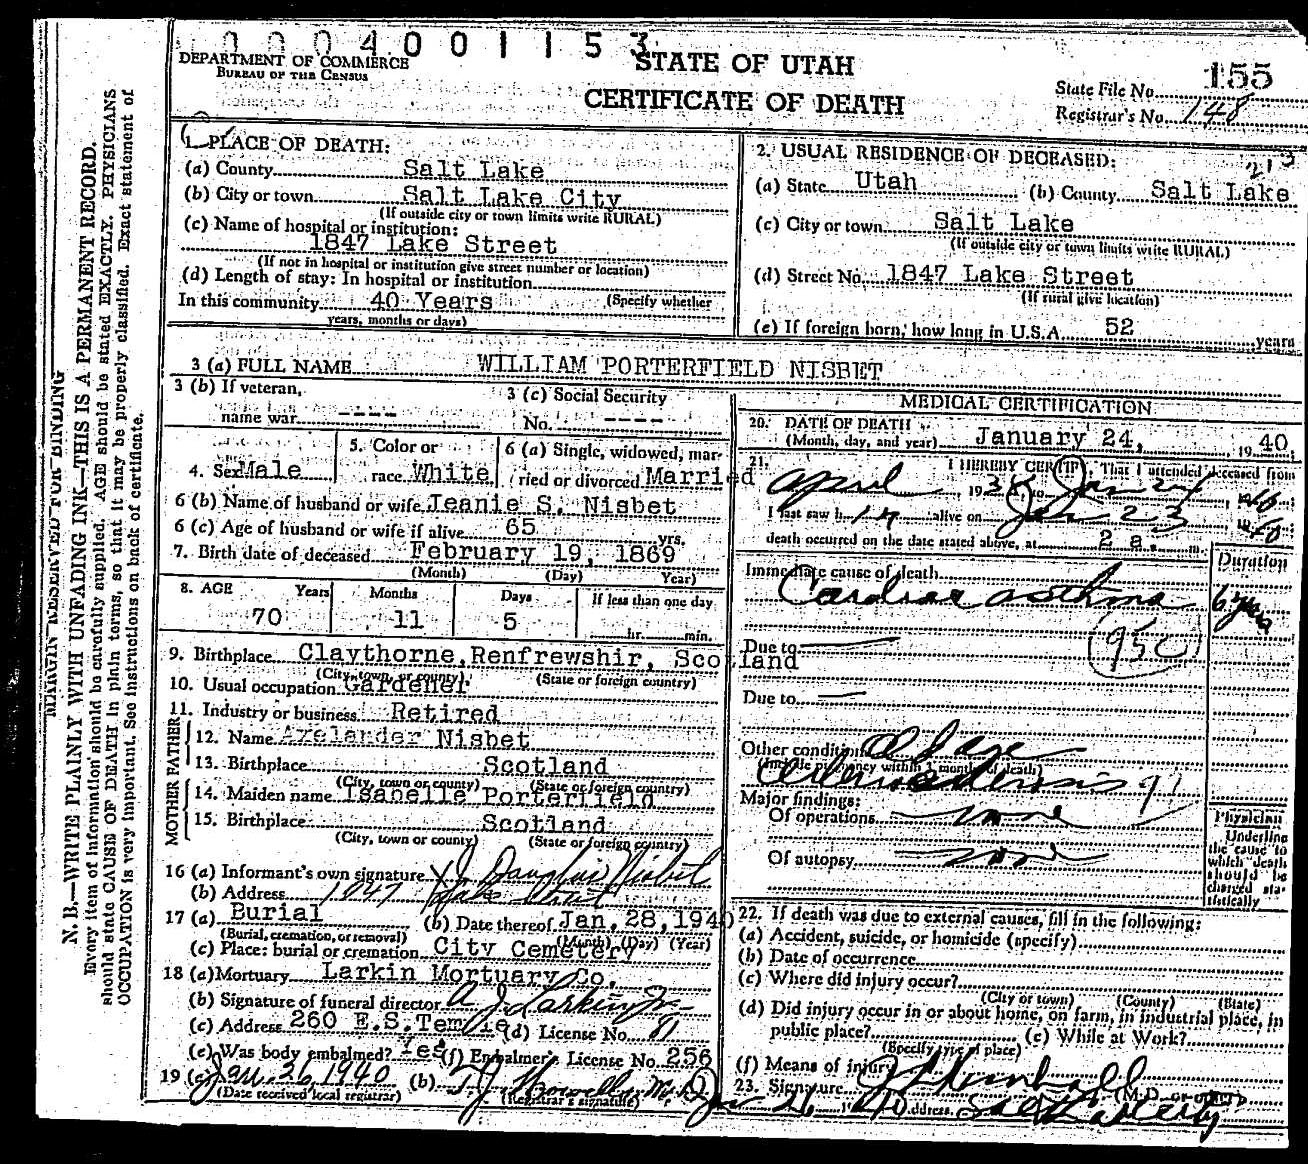 0004001153
DEPARTMENT OF COMMERCE
BUREAU OF THE CENSUS
STATE OF UTAH
CERTIFICATE OF DEATH
State File No. 155
Registrar's No. 148
MARGIN RESERVED FOR BINDING
N. B.—WRITE PLAINLY WITH UNFADING INK—THIS IS A PERMANENT RECORD.
Every item of information should be carefully supplied. AGE should be stated EXACTLY. PHYSICIANS
should state CAUSE OF DEATH in plain terms, so that it may be properly classified. Exact statement of
OCCUPATION is very important. See instructions on back of certificate.
1. PLACE OF DEATH:
(a) County Salt Lake
(b) City or town Salt Lake City
(If outside city or town limits write RURAL)
(c) Name of hospital or institution:
1847 Lake Street
(If not in hospital or institution give street number or location)
(d) Length of stay: In hospital or institution
In this community 40 Years (Specify whether
years, months or days)
2. USUAL RESIDENCE OF DECEASED:
213
(a) State Utah (b) County Salt Lake
(c) City or town Salt Lake
(If outside city or town limits write RURAL)
(d) Street No. 1847 Lake Street
(If rural give location)
(e) If foreign born, how long in U.S.A. 52 years
3 (a) FULL NAME WILLIAM PORTERFIELD NISBET
3 (b) If veteran, name war ----
3 (c) Social Security No. ----
4. Sex Male
5. Color or race White
6 (a) Single, widowed, married or divorced Married
6 (b) Name of husband or wife Jeanie S. Nisbet
6 (c) Age of husband or wife if alive 65 yrs.
7. Birth date of deceased February 19, 1869
(Month) (Day) Year)
8. AGE Years Months Days If less than one day
70 11 5 hr. min.
9. Birthplace Claythorne, Renfrewshir, Scotland
(City, town, or county) (State or foreign country)
10. Usual occupation Gardener
11. Industry or business Retired
FATHER
12. Name Axelander Nisbet
13. Birthplace Scotland
(City, town or county) (State or foreign country)
MOTHER
14. Maiden name Isabelle Porterfield
15. Birthplace Scotland
(City, town or county) (State or foreign country)
16 (a) Informant's own signature J. Douglas Nisbet
(b) Address 1847 Lake Street
17 (a) Burial (b) Date thereof Jan, 28, 1940
(Burial, cremation, or removal) (Month) (Day) (Year)
(c) Place: burial or cremation City Cemetery
18 (a) Mortuary Larkin Mortuary Co.
(b) Signature of funeral director A J. Larkin Jr
(c) Address 260 E.S.Temple (d) License No. 81
(e) Was body embalmed? Yes (f) Embalmer's License No. 256
19 (a) Jan. 26, 1940 (b) T. J. Howells, M.D.
(Date received local registrar) (Registrar's signature)
MEDICAL CERTIFICATION
20. DATE OF DEATH
(Month, day, and year) January 24, 1940
21. I HEREBY CERTIFY, That I attended deceased from
April 193 to Jan 24 1940
I last saw h im alive on Jan 23 1940
death occurred on the date stated above, at 2 a. m.
Duration
Immediate cause of death
Cardiac asthma 6 yrs
95c
Due to
Due to
Other conditions Old age
(Include pregnancy within 3 months of death)
Arteriosclerosis 97
Major findings:
Of operations none
Of autopsy none
Physician
Underline
the cause to
which death
should be
charged sta-
tistically
22. If death was due to external causes, fill in the following:
(a) Accident, suicide, or homicide (specify)
(b) Date of occurrence
(c) Where did injury occur?
(City or town) (County) (State)
(d) Did injury occur in or about home, on farm, in industrial place, in
public place? (e) While at Work?
(Specify type of place)
(f) Means of injury
23. Signature Kimball
(M.D. or other)
Jan 26 1940 Address Salt Lake City